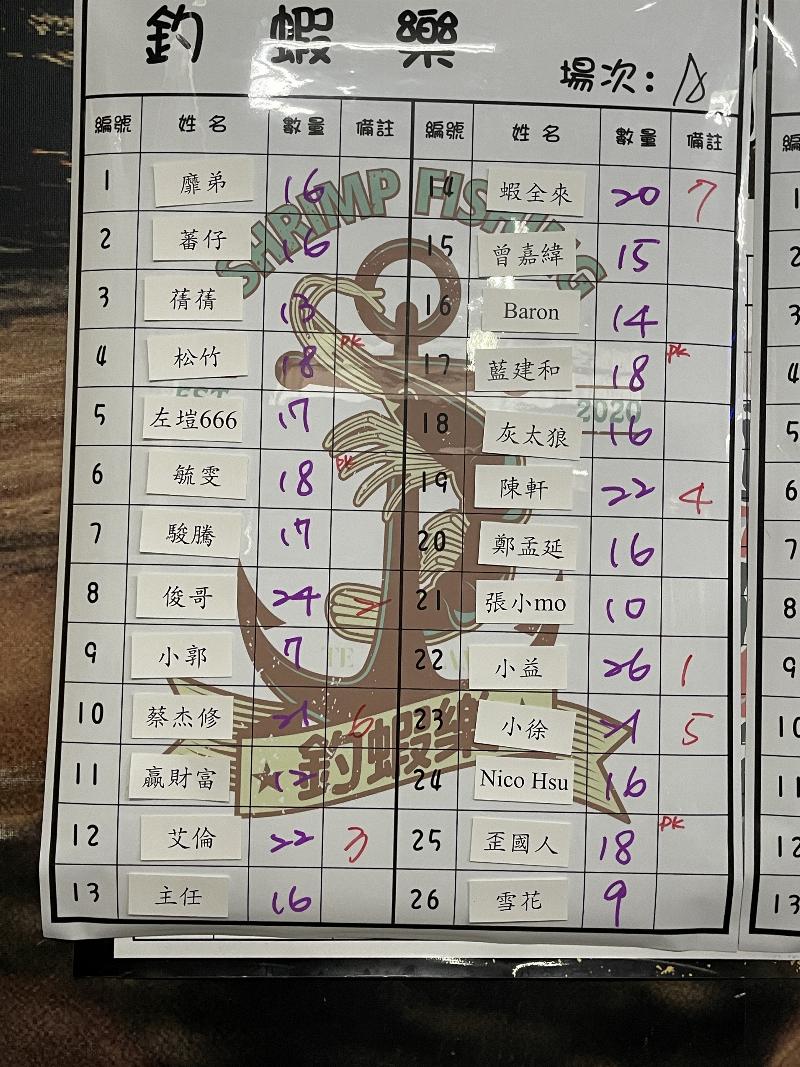 釣蝦樂
場次: A
編號 姓名 數量 備註 編號 姓名 數量 備註
1 靡弟 16 14 蝦全來 20 7
2 蕃仔 16 15 曾嘉緯 15
3 蒨蒨 13 16 Baron 14
4 松竹 18 PK 17 藍建和 18 PK
5 左塏666 17 18 灰太狼 16
6 毓雯 18 PK 19 陳軒 22 4
7 駿騰 17 20 鄭孟延 16
8 俊哥 24 2 21 張小mo 10
9 小郭 7 22 小益 26 1
10 蔡杰修 21 6 23 小徐 21 5
11 贏財富 12 24 Nico Hsu 16
12 艾倫 22 3 25 歪國人 18 PK
13 主任 16 26 雪花 9
SHRIMP FISHING
2020
釣蝦樂
編
1
2
3
4
5
6
7
8
9
10
11
12
13